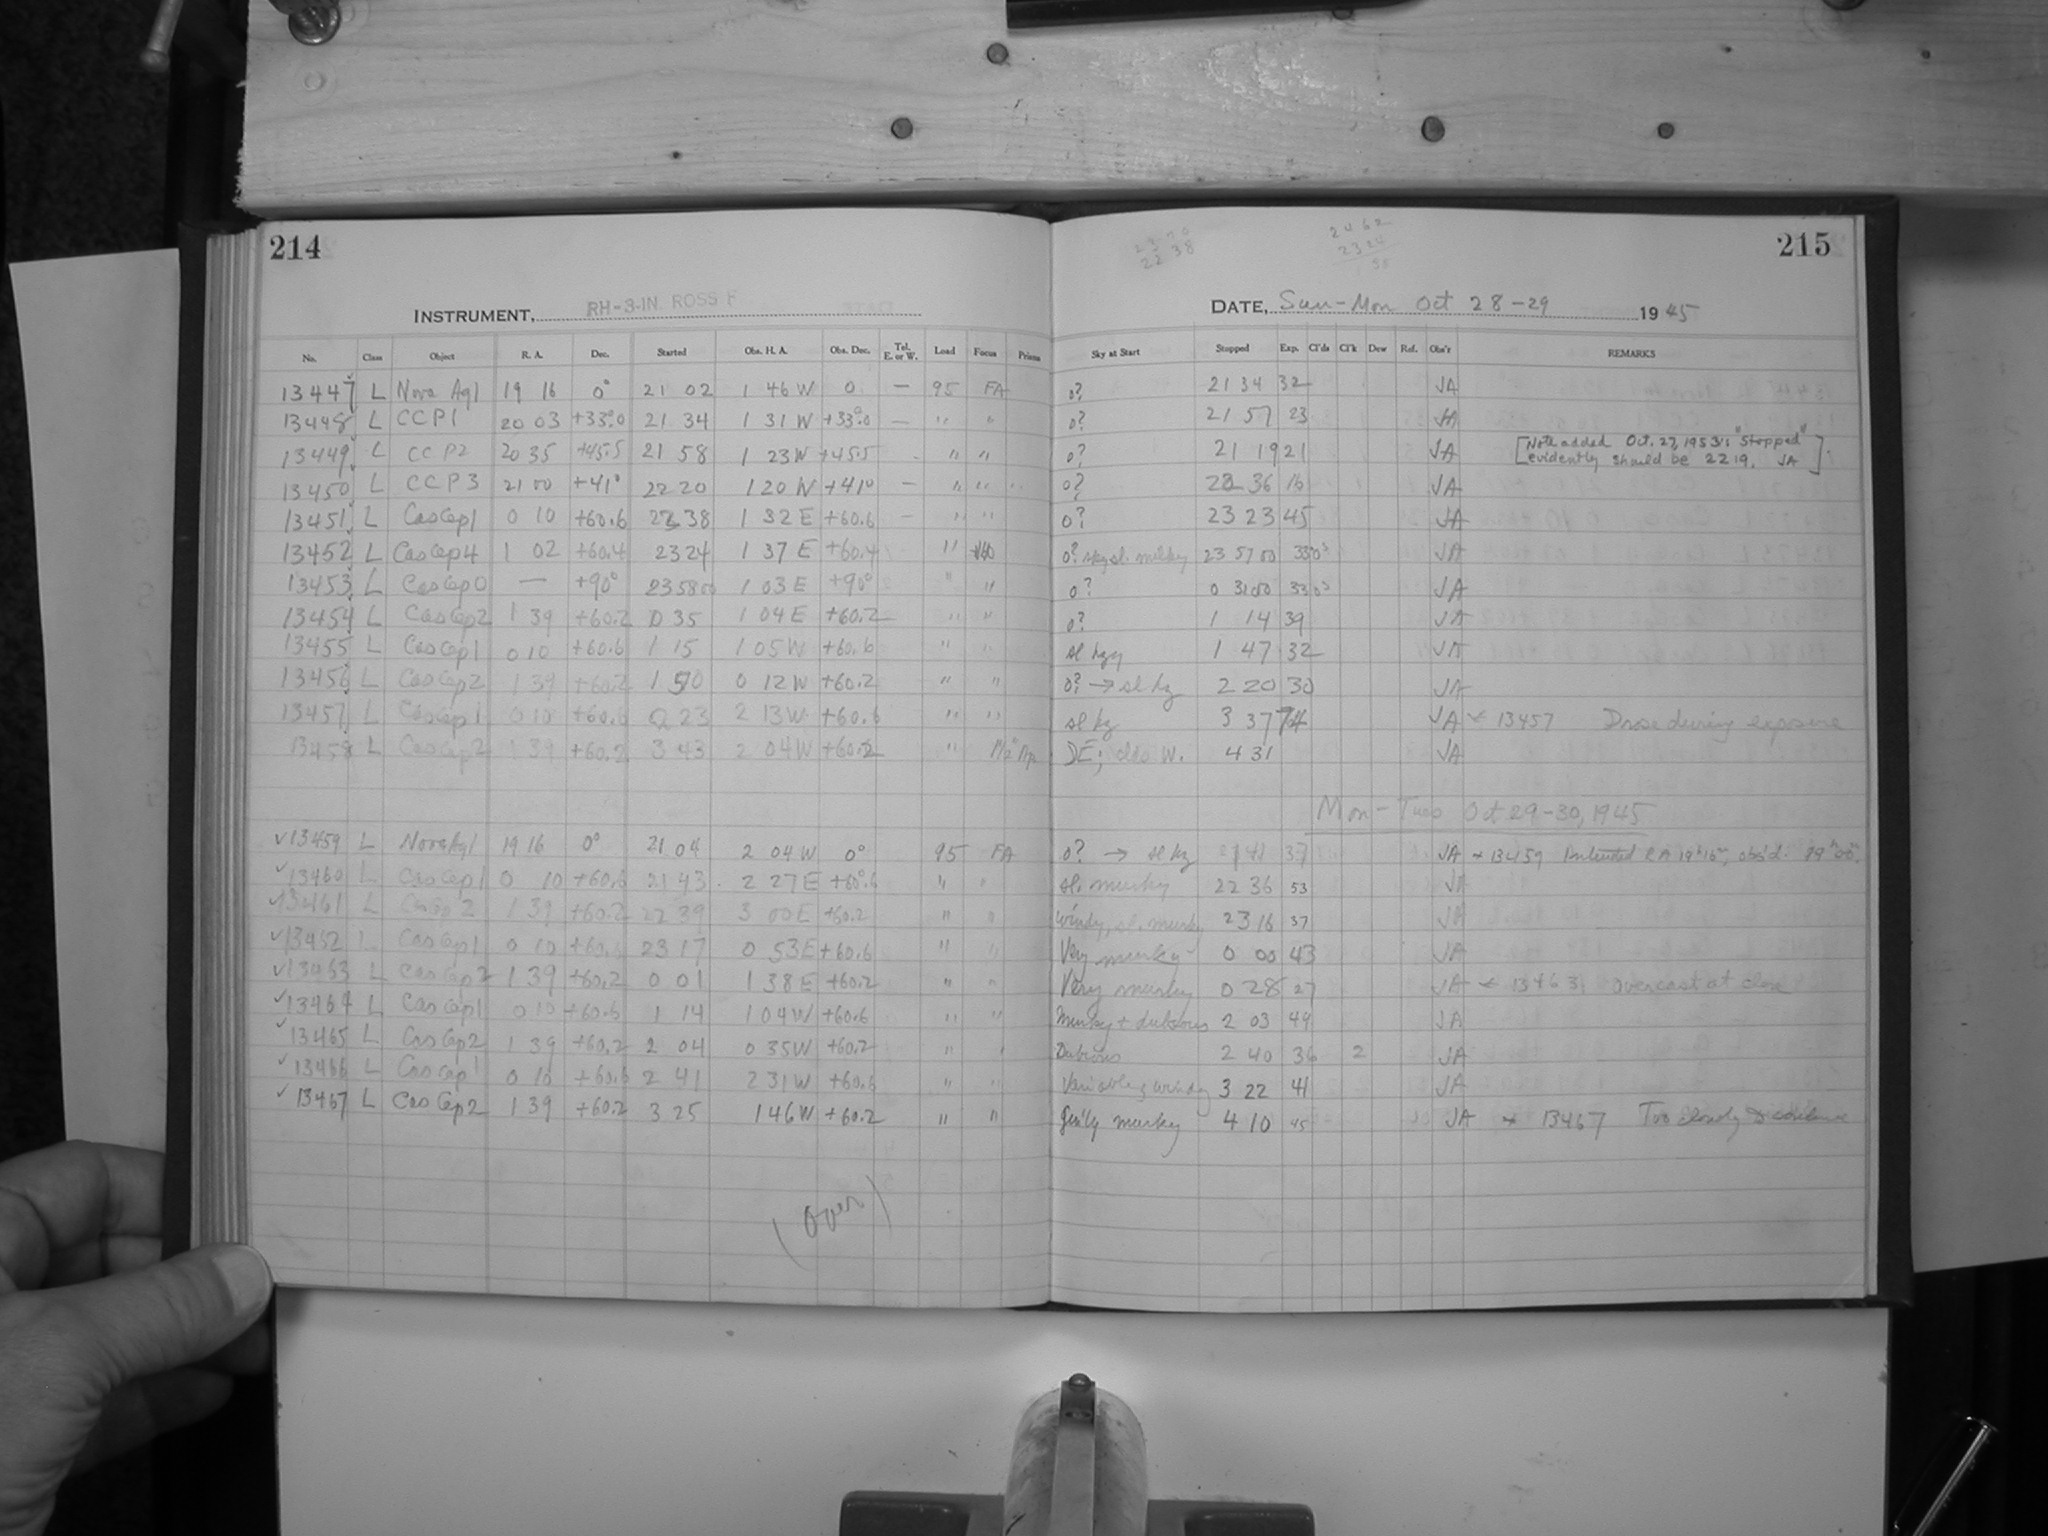 214
INSTRUMENT, RH-3-IN. ROSS F
No. Class Object R. A. Dec. Started Obs. H. A. Obs. Dec. Tel. E. or W. Load Focus Prisms
13447 L Nova Aql 19 16 0° 21 02 1 46 W 0 — 95 FA
13448 L CCP1 20 03 +33°.0 21 34 1 31 W +33°.0 — " "
13449 L CCP2 20 35 +45.5 21 58 1 23 W +45.5 " "
13450 L CCP3 21 00 +41° 22 20 1 20 W +41° — " "
13451 L CasCep1 0 10 +60.6 22 38 1 32 E +60.6 — " "
13452 L CasCep4 1 02 +60.4 23 24 1 37 E +60.4 "
13453 L CasCep0 — +90° 23 58 00 1 03 E +90° " "
13454 L CasCep2 1 39 +60.2 0 35 1 04 E +60.2 " "
13455 L CasCep1 0 10 +60.6 1 15 1 05 W +60.6 " "
13456 L CasCep2 1 39 +60.2 1 50 0 12 W +60.2 " "
13457 L CasCep1 0 10 +60.6 2 23 2 13 W +60.6 " "
13458 L CasCep2 1 39 +60.2 3 43 2 04 W +60.2 "
✓13459 L Nova Aql 19 16 0° 21 04 2 04 W 0° 95 FA
✓13460 L CasCep1 0 10 +60.6 21 43 2 27 E +60.6 " "
✓13461 L CasCep2 1 39 +60.2 22 39 3 00 E +60.2 " "
✓13462 L CasCep1 0 10 +60.6 23 17 0 53 E +60.6 " "
✓13463 L CasCep2 1 39 +60.2 0 01 1 38 E +60.2 " "
✓13464 L CasCep1 0 10 +60.6 1 14 1 04 W +60.6 " "
✓13465 L CasCep2 1 39 +60.2 2 04 0 35 W +60.2 " "
✓13466 L CasCep1 0 10 +60.6 2 41 2 31 W +60.6 " "
✓13467 L CasCep2 1 39 +60.2 3 25 1 46 W +60.2 " "
(over)
215
DATE, Sun-Mon Oct 28-29 1945
Sky at Start Stopped Exp. Cl'ds Cl'k Dew Ref. Obs'r REMARKS
0? 21 34 32 JA
0? 21 57 23 JA
0? 21 19 21 JA [Note added Oct. 27, 1953: "Stopped"
evidently should be 2219. JA]
0? 22 36 16 JA
0? 23 23 45 JA
0? sky sl. milky 23 57 00 JA
0? 0 31 00 JA
0? 1 14 39 JA
sl hzy 1 47 32 JA
0? → sl hz 2 20 30 JA
sl hz 3 37 74 JA * 13457 Drose during exposure
DE; clds W. 4 31 JA
Mon-Tues Oct 29-30, 1945
0? → sl hz 21 41 37 JA * 13459 RA 19h16m, obs'd.
sl. murky 22 36 53 JA
windy, sl. murky 23 16 37 JA
Very murky 0 00 43 JA
Very murky 0 28 27 JA * 13463 Overcast at close
Murky + dubious 2 03 49 JA
Dubious 2 40 36 2 JA
Variable, windy 3 22 41 JA
gen'ly murky 4 10 45 JA * 13467 Too cloudy to continue